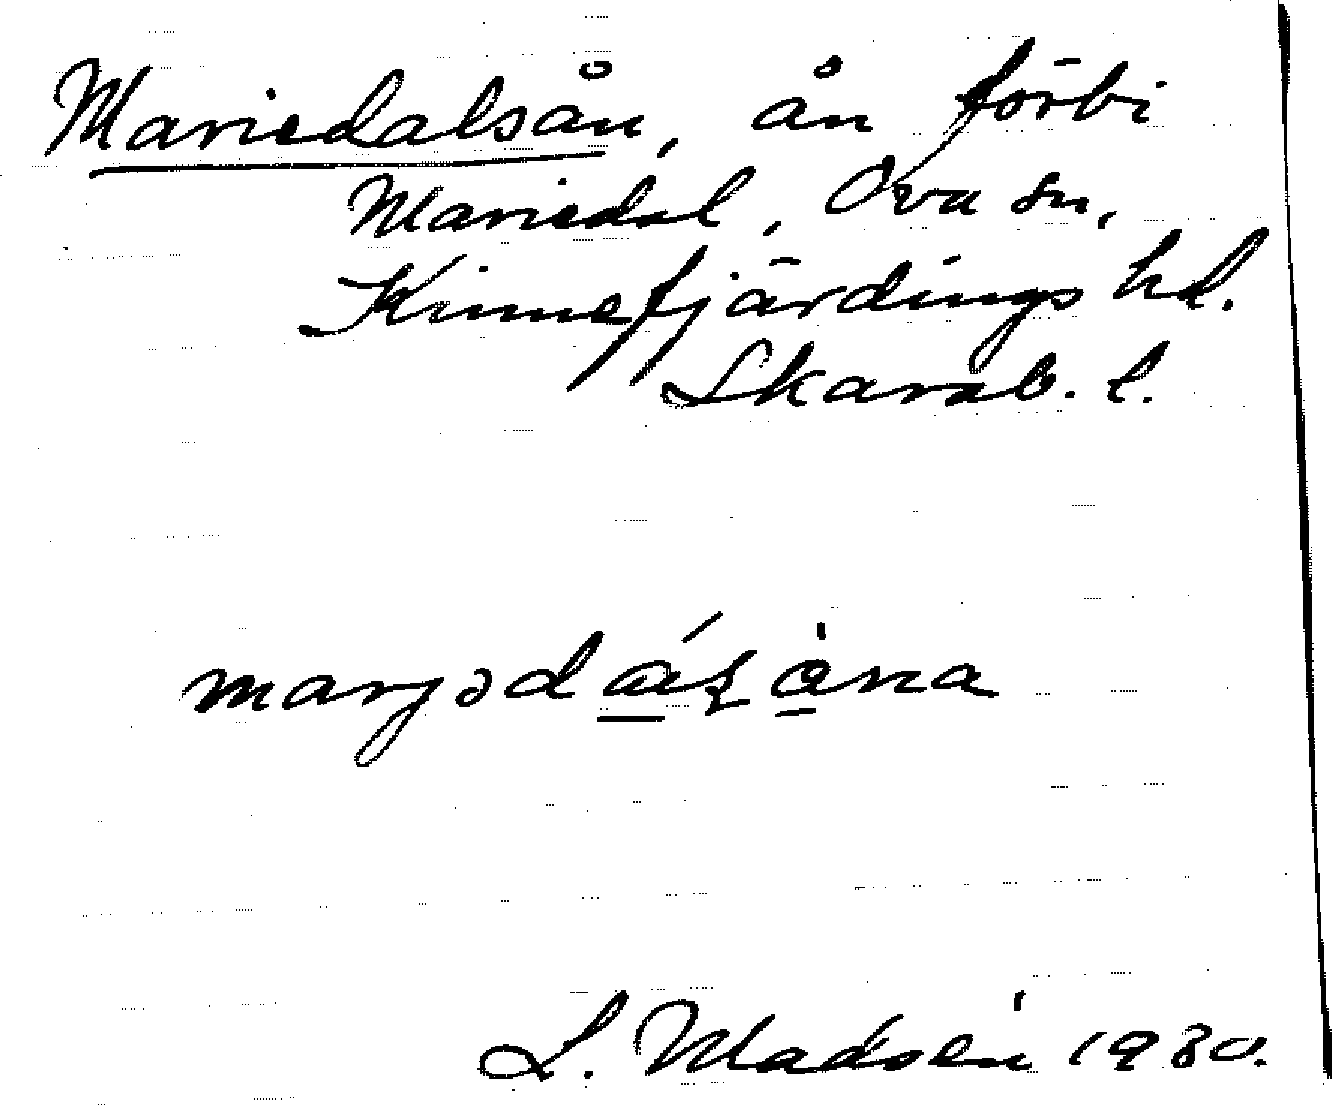 Mariedalsån, ån förbi
Mariedal, Ova sn,
Kinnefjärdings hd.
Skarab. l.
L. Madsén 1930.